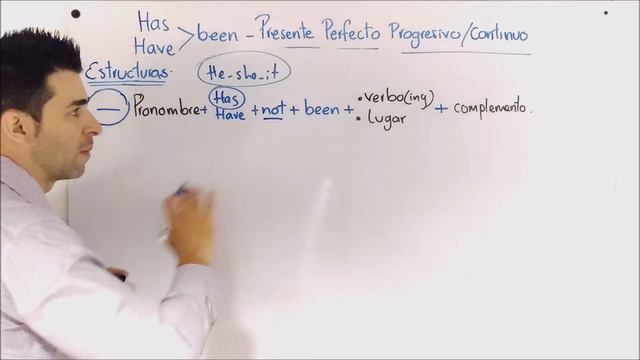 Has
Have
been - Presente Perfecto Progresivo/Continuo
Estructuras.
He-she-it
- Pronombre + Has + not + been + • verbo(ing) + complemento.
Have • lugar